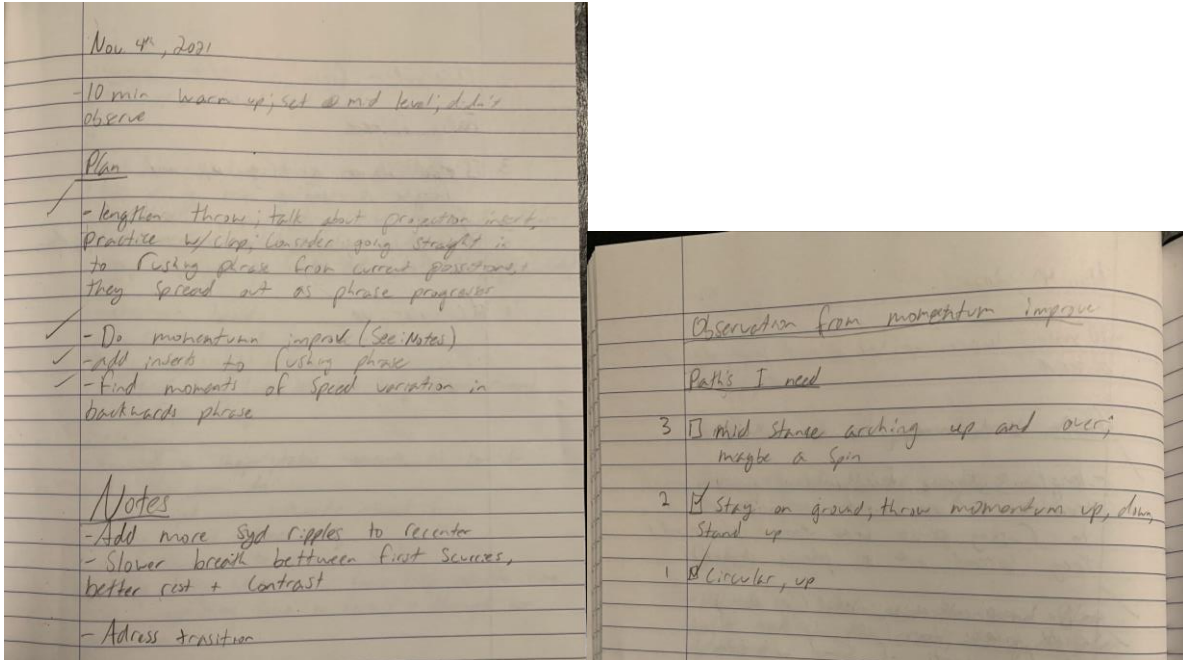 Nov. 4th, 2021
-10 min warm up; set @ mid level; didn't
observe
Plan
- lengthen throw; talk about projection insert,
practice w/ clap; Consider going straight in
to rushing phrase from current possitions,
they spread out as phrase progresses
- Do momentumn improv (See: Notes)
- add inserts to rushing phrase
- find moments of Speed variation in
backwards phrase
Notes
- Add more Syd ripples to recenter
- Slower breath bettween first Scurries,
better rest + Contrast
- Adress trasition
Observation from momentum improv
Path's I need
3 mid stance arching up and over;
maybe a spin
2 Stay on ground, throw momentum up, down,
Stand up
1 Circular, up